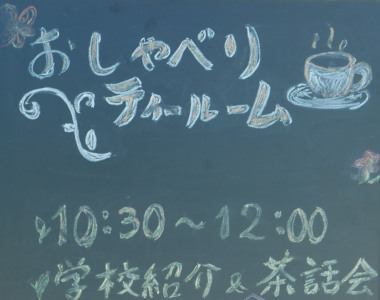 おしゃべり
ティールーム
10:30~12:00
学校紹介&茶話会